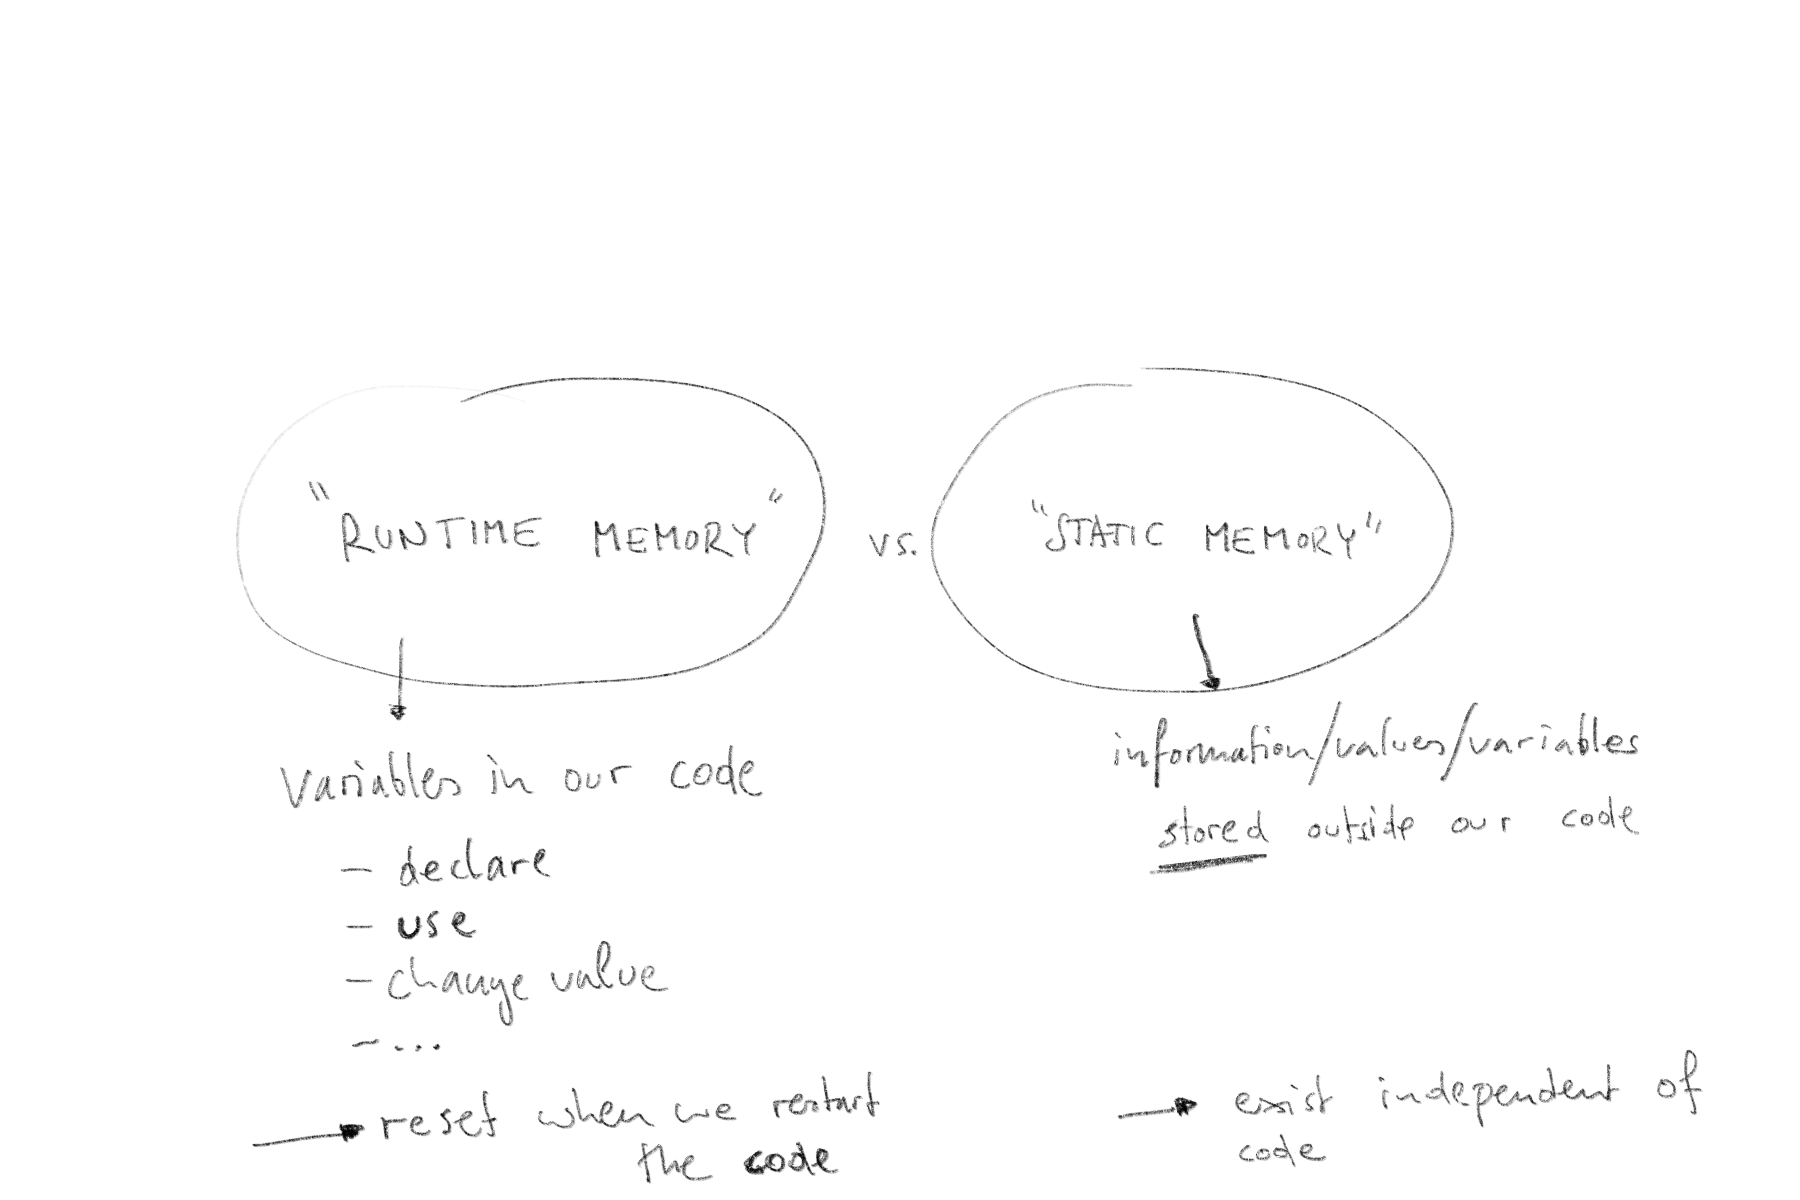 "RUNTIME MEMORY" vs. "STATIC MEMORY"
Variables in our code
- declare
- use
- change value
- ...
reset when we restart
the code
information/values/variables
stored outside our code
exist independent of
code